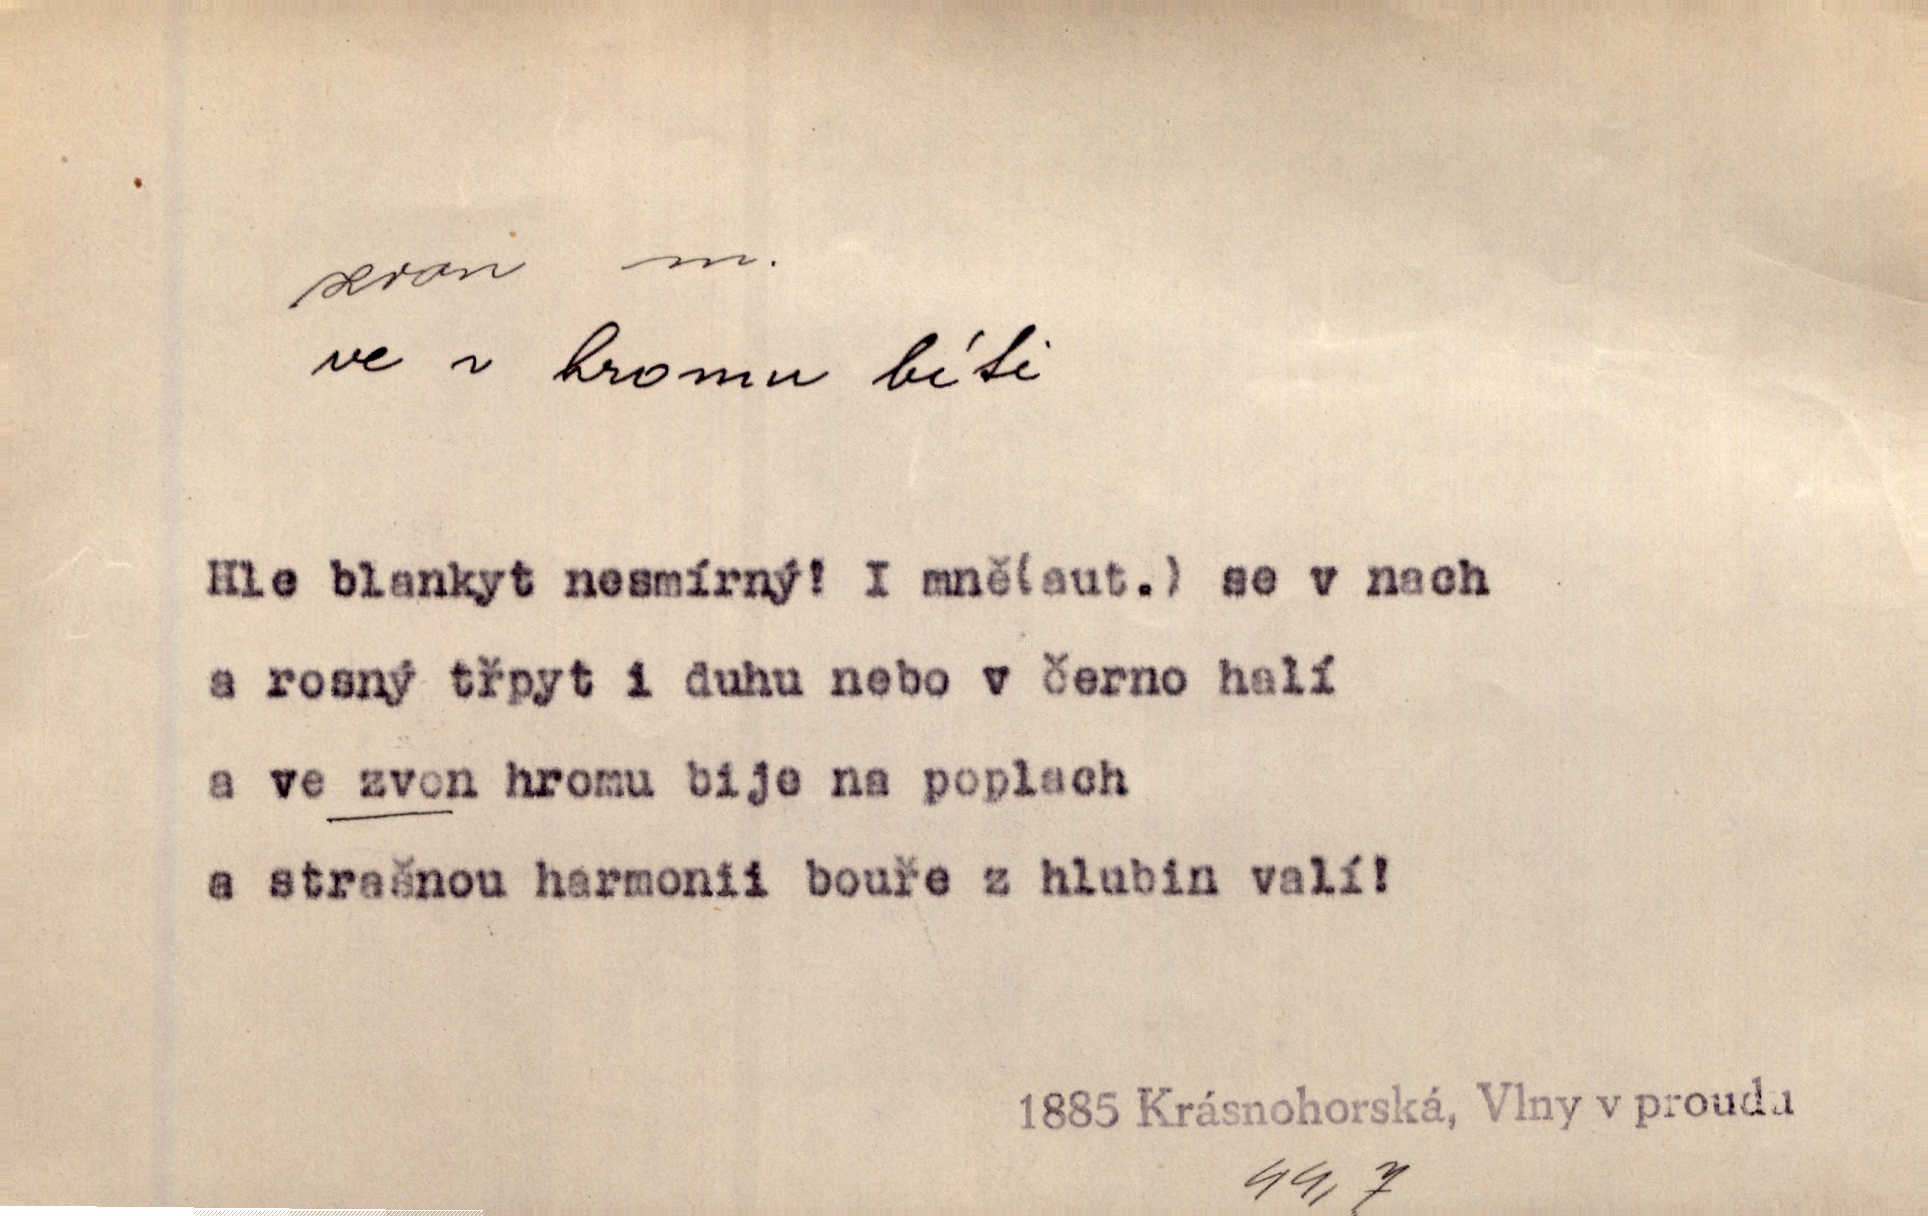 zvon m.
ve z hromu bíti
Hle blankyt nesmírný! I mně(aut.) se v nach
a rosný třpyt i duhu nebo v černo halí
a ve zvon hromu bije na poplach
a strašnou harmonii bouře z hlubin valí!
1885 Krásnohorská, Vlny v proudu
44, 7